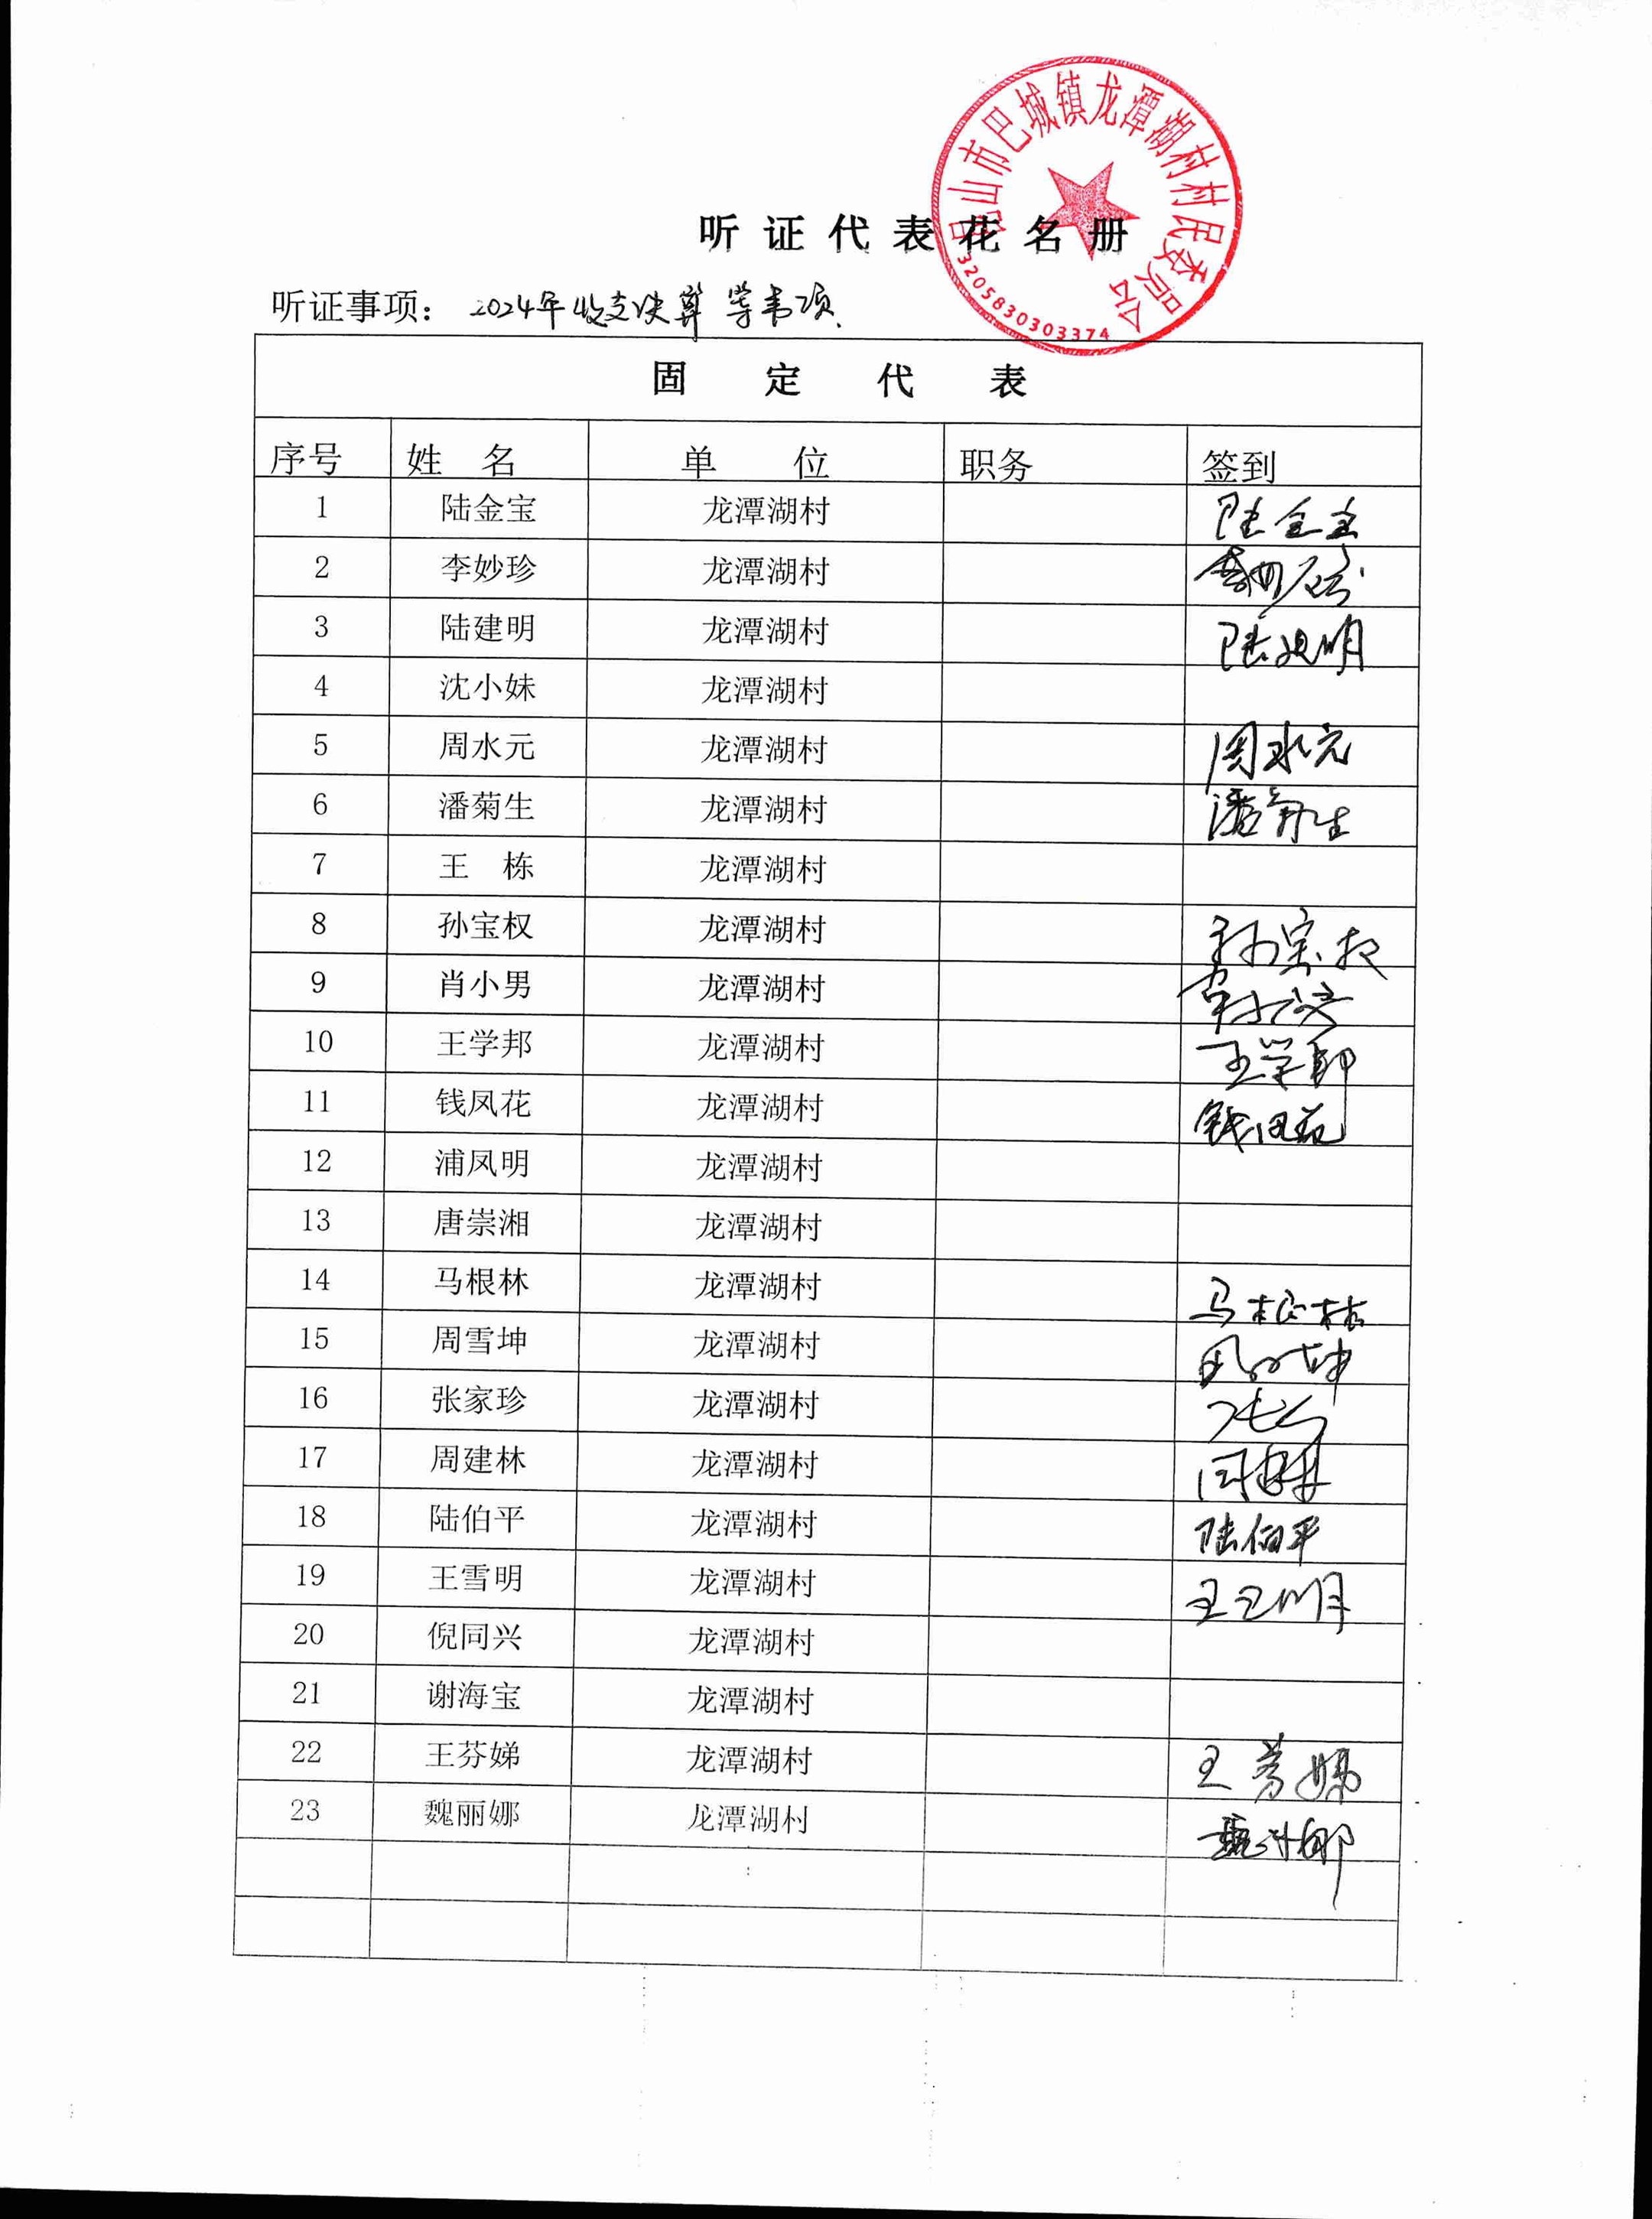 昆山市巴城镇龙潭湖村村民委员会
3205830303374
听证代表花名册
听证事项： 2024年收支决算等事项
固 定 代 表
序号 姓 名 单 位 职务 签到
1 陆金宝 龙潭湖村 陆金宝
2 李妙珍 龙潭湖村 李妙珍
3 陆建明 龙潭湖村 陆建明
4 沈小妹 龙潭湖村
5 周水元 龙潭湖村 周水元
6 潘菊生 龙潭湖村 潘菊生
7 王 栋 龙潭湖村
8 孙宝权 龙潭湖村 孙宝权
9 肖小男 龙潭湖村
10 王学邦 龙潭湖村 王学邦
11 钱凤花 龙潭湖村 钱凤花
12 浦凤明 龙潭湖村
13 唐崇湘 龙潭湖村
14 马根林 龙潭湖村 马根林
15 周雪坤 龙潭湖村 周雪坤
16 张家珍 龙潭湖村
17 周建林 龙潭湖村 周建林
18 陆伯平 龙潭湖村 陆伯平
19 王雪明 龙潭湖村 王雪明
20 倪同兴 龙潭湖村
21 谢海宝 龙潭湖村
22 王芬娣 龙潭湖村 王芬娣
23 魏丽娜 龙潭湖村 魏丽娜